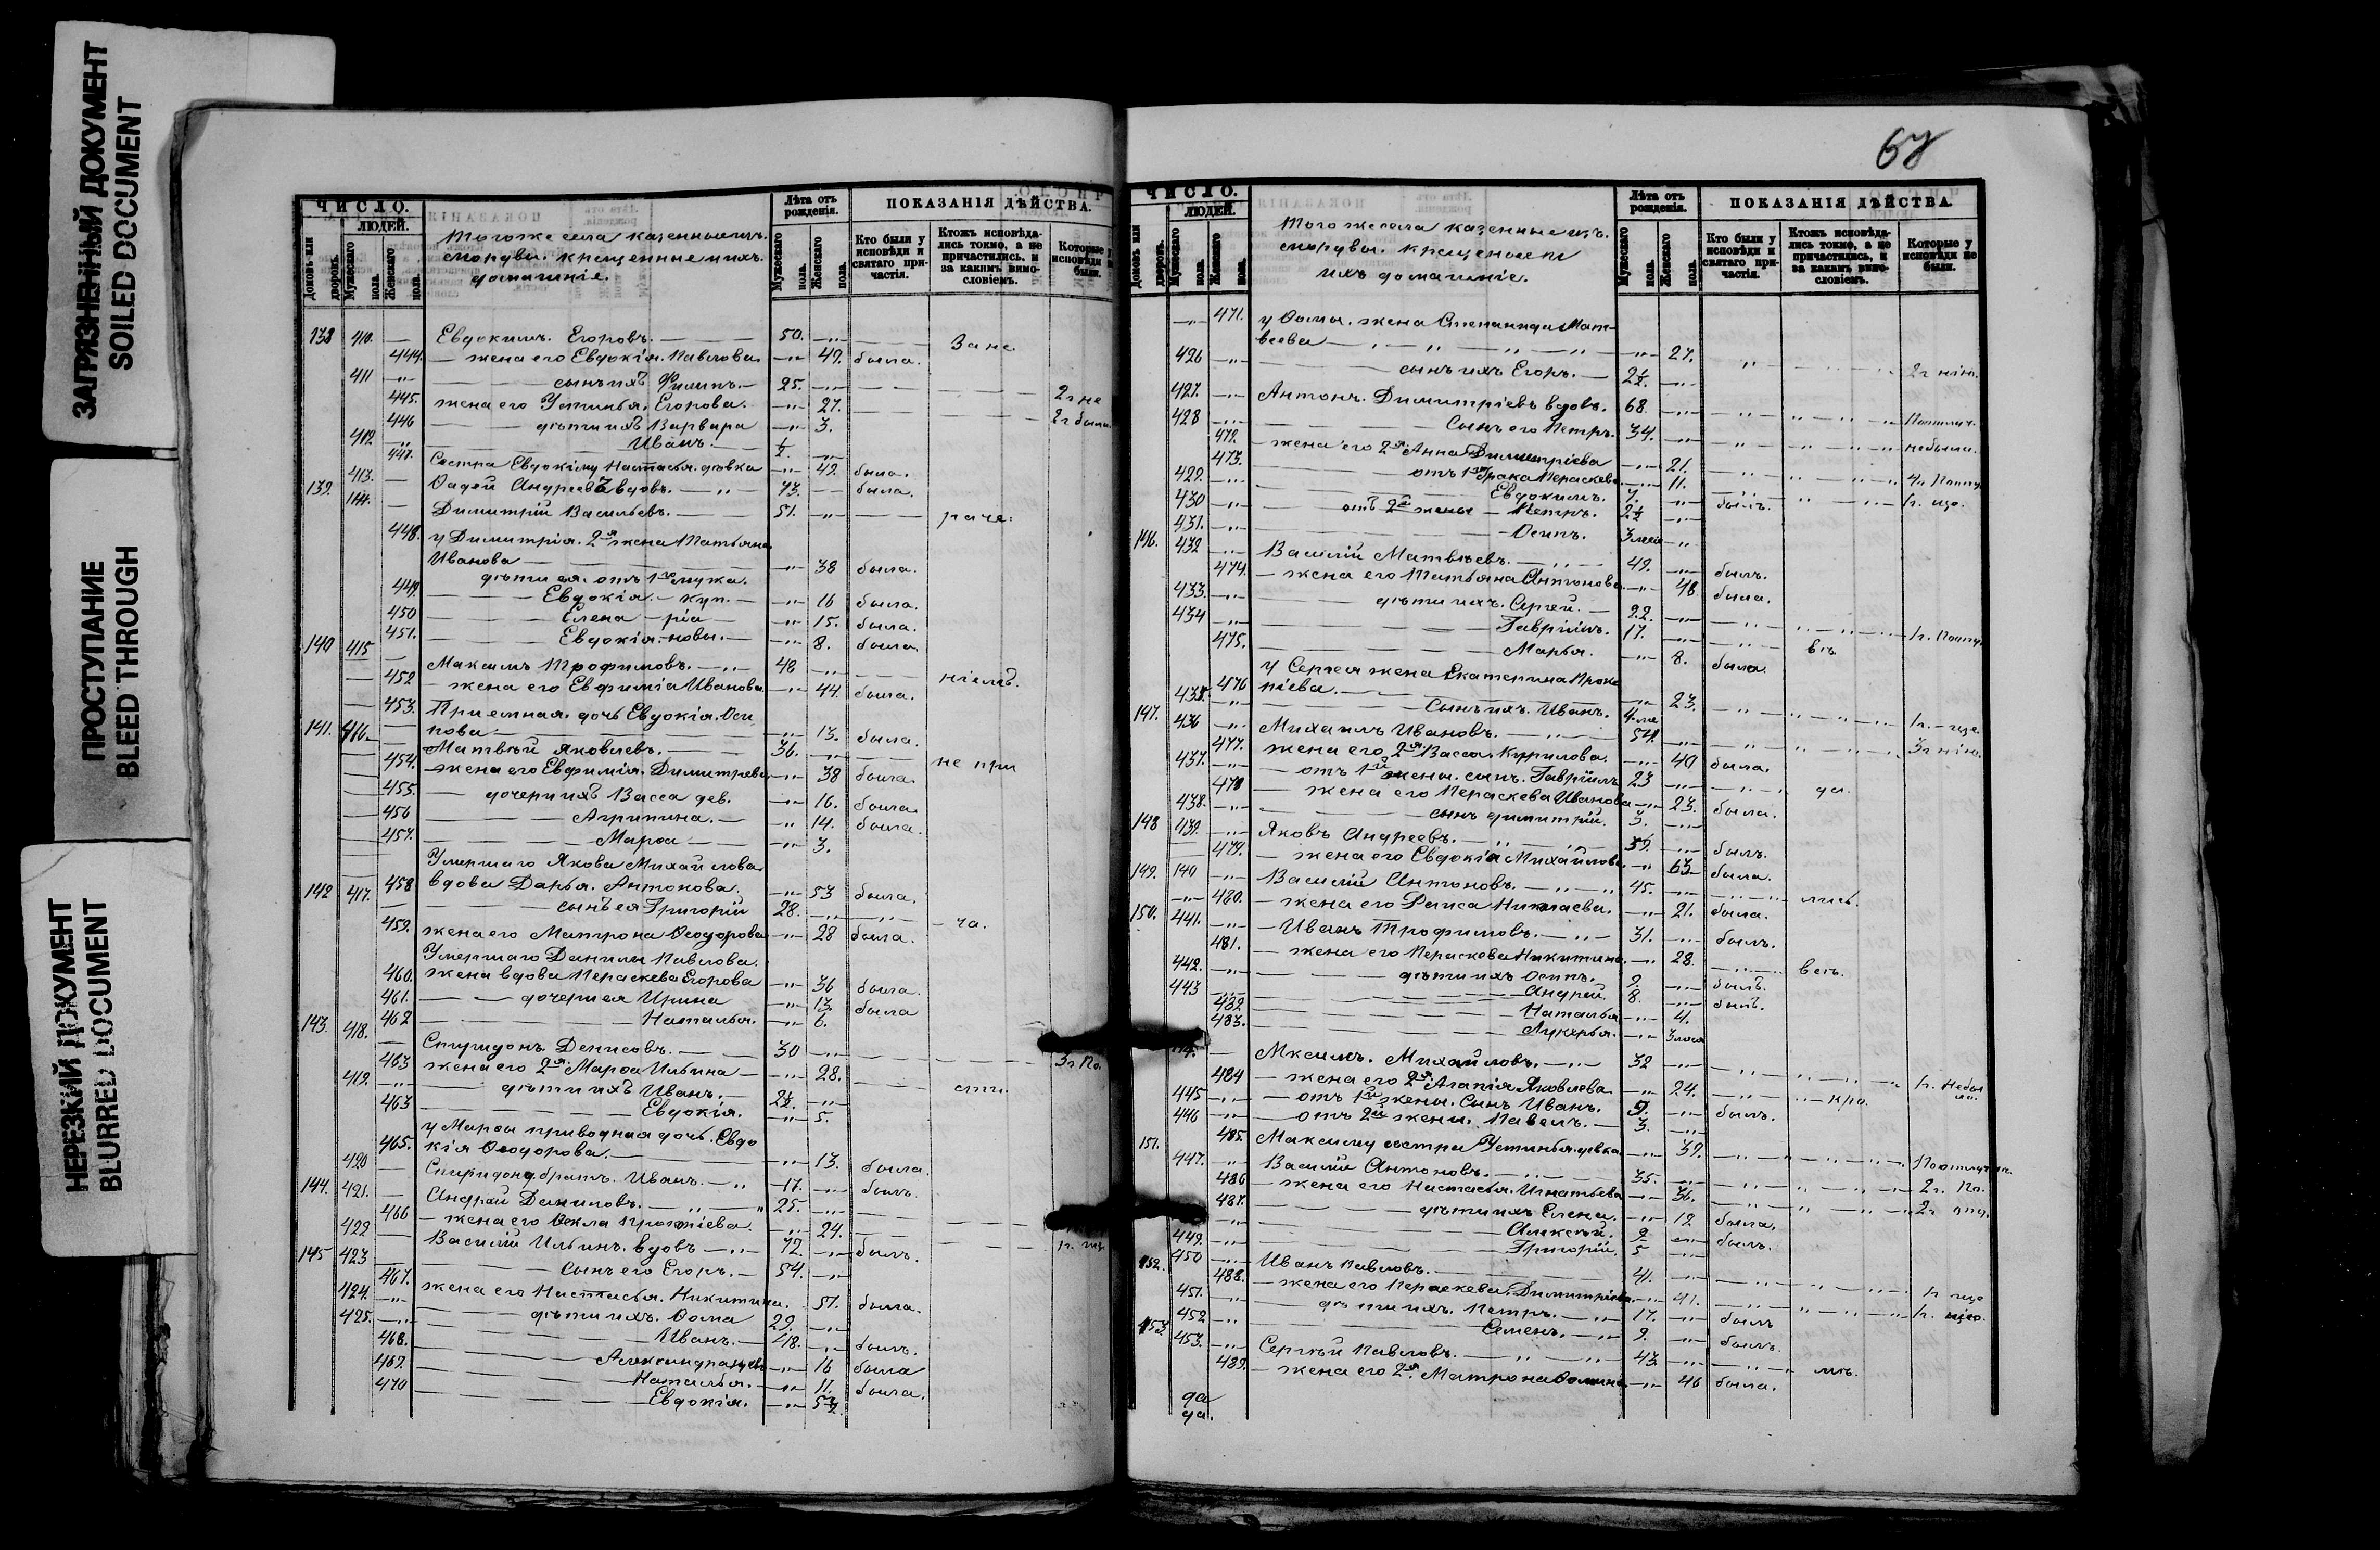 ЗАГРЯЗНЕННЫЙ ДОКУМЕНТ
SOILED DOCUMENT
ПРОСТУПАНИЕ
BLEED THROUGH
НЕРЕЗКИЙ ДОКУМЕНТ
BLURRED DOCUMENT
ЧИСЛО.
ЛЮДЕЙ.
Домовъ или дворовъ.
Мужескаго пола.
Женскаго пола.
Тогоже села казенные изъ
мордвы крещенные и ихъ
домашніе.
Лѣта отъ рожденія.
Мужескаго пола.
Женскаго пола.
ПОКАЗАНІЯ ДѢЙСТВА.
Кто были у исповѣди и святаго причастія.
Ктожъ исповѣдались токмо, а не причастились, и за какимъ винословіемъ.
Которые у исповѣди не
были.
138 410. Евдокимъ Егоровъ. 50. За не
444. жена его Евдокія Павлова 49. была.
411 сынъ ихъ Филипъ. 25. 2 г не
445. жена его Устинья Егорова. 27. 2 г была
446 дѣти ихъ Варвара 3.
412. Иванъ. ½.
447. Сестра Евдокиму Настасья дѣвка 42. была.
139. 413. Фадей Андреевъ вдовъ. 73. была.
414. Димитрій Васильевъ. 51. раче:
448. у Димитрія 2я жена Татьяна
Иванова 38 была.
дѣти ея отъ 1го мужа.
449. Евдокія. Куп. 16 была.
450 Елена рія 15. была.
451. Евдокія новы. 8. была.
140 415 Максимъ Трофимовъ. 48 ніемъ.
452 жена его Евфимія Иванова 44. была.
453. Приемная дочь Евдокія Оси
пова 13. была.
141. 416. Матвѣй Яковлевъ. 36. не при
454. жена его Евфимія Димитрева 38 была.
455. дочери ихъ Васса дев. 16. была.
456 Агрипина. 14. была.
457. Марѳа 3.
Умершаго Якова Михайлова
458 вдова Дарья Антонова. 53 была.
142 417. сынъ ея Григорій 28. ча.
459. жена его Матрона Ѳеодорова 28 была.
Умершаго Данилы Павлова
460. жена вдова Пераскева Егорова 36 была.
461. дочери ея Ирина 13. была
462 Наталья. 6.
143. 418. Спиридонъ Денисовъ. 30 3 г По.
463 жена его 2я Марѳа Ильина 28. сти.
419. дѣти ихъ Иванъ. 2½.
463 Евдокія. 5.
у Марѳы приводная дочь Евдо
465. кія Ѳеодорова. 13. была.
420 Спиридону братъ Иванъ. 17. былъ.
144. 421. Андрей Даниловъ. 25.
466 жена его Ѳекла 24.
422 Василій Ильинъ вдовъ 72. былъ.
145 423 сынъ его Егоръ. 54.
467. жена его Настасья Никитина. 51. была.
424. дѣти ихъ Ѳома 29.
425. Иванъ. 18. былъ.
468. Александра 16 была
469. Наталья. 11. была.
470 Евдокія. 5½.
ЧИСЛО.
ЛЮДЕЙ.
Домовъ или дворовъ.
Мужескаго пола.
Женскаго пола.
Тогоже села казенные изъ
мордвы крещеные и
ихъ домашніе.
Лѣта отъ рожденія.
Мужескаго пола.
Женскаго пола.
ПОКАЗАНІЯ ДѢЙСТВА.
Кто были у исповѣди и святаго причастія.
Ктожъ исповѣдались токмо, а не причастились, и за какимъ винословіемъ.
Которые у исповѣди не были.
471. у Ѳомы жена Степанида Мат-
веева 27. 2 г нію.
426 сынъ ихъ Егоръ. 2½.
427. Антонъ Димитріевъ вдовъ. 68.
428 Сынъ его Петръ. 34. небыла.
472. жена его 2я Анна Димитріева 21.
473. отъ 1го брака Пераскева 11.
429. Евдокимъ. 7. былъ.
430 отъ 2й жены Петръ. 2½
431. Осипъ. 3 меся
146. 432 Василій Матвѣевъ. 49. былъ.
474. жена его Татьяна Антонова 48. была.
433. дѣти ихъ Сергей. 22.
434 Гавріилъ. 17. въ
475. Марья. 8. была.
у Сергея жена Екатерина Проко
476 піева. 23.
435. Сынъ ихъ Иванъ. 4 ме
147. 436 Михаилъ Ивановъ. 54. 3 г нію.
477. жена его 2я Васса Курилова. 40 была.
437. отъ 1й жены сынъ Гавріилъ 23 да.
478 жена его Пераскева Иванова 23. была.
438. сынъ Димитрій. 3.
148 439. Яковъ Андреевъ. 59. былъ.
479. жена его Евдокія Михайлова 63 была.
149. 440 Василій Антоновъ. 45. лись.
480. жена его Раиса Николаева. 21. была.
150. 441. Иванъ Трофимовъ. 31. былъ.
481. жена его Пераскева Никитина 28.
442. дѣти ихъ Осипъ. 9. былъ.
443 Андрей. 8. былъ.
482 Наталья 4.
483. Лукерья. 3 меся
Мксимъ Михайловъ. 32
484 жена его 2я Агапія Яковлева 24. кра.
445 отъ 1й жены Сынъ Иванъ. 9. былъ.
446 отъ 2й жены Павелъ. 3.
151. 485. Максиму сестра Устинья девка 39.
447. Василій Антоновъ. 35. 2 г. По.
486 жена его Настасья Игнатьева 36.
487. дѣти ихъ Елена. 12 была.
Алексѣй. 9 былъ.
449. Григорій. 5
152. 450 Иванъ Павловъ. 41.
488. жена его Пераскева Димитріева 41.
451. дѣти ихъ Петръ. 17. былъ
452 Семенъ. 9. былъ.
153. 453. Сергѣй Павловъ. 43 мъ.
489. жена его 2я Матрона Ѳомина 46 была.
да
да.